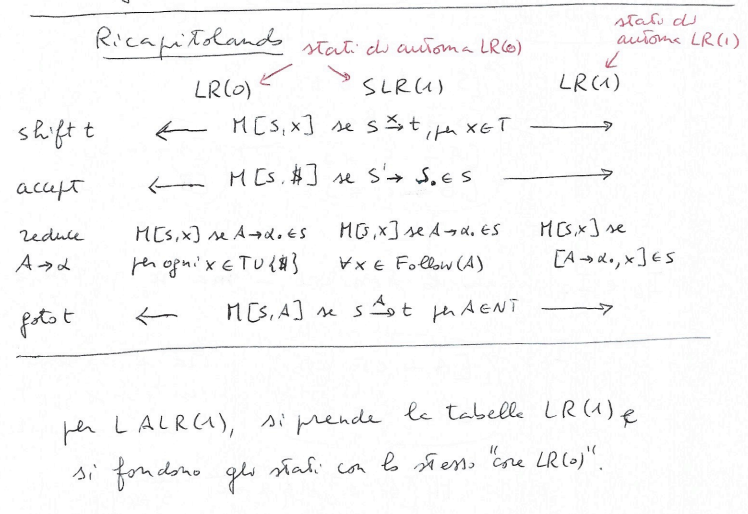 Ricapitolando
stati di automa LR(0)
stati di
automa LR(1)
LR(0) SLR(1) LR(1)
shift t ← M[s,x] se s →x t, per x ∈ T →
accept ← M[s,$] se S' → S. ∈ s →
reduce M[s,x] se A → α. ∈ s M[s,x] se A → α. ∈ s M[s,x] se
A → α per ogni x ∈ T ∪ {$} ∀x ∈ Follow(A) [A → α., x] ∈ s
goto t ← M[s,A] se s →A t per A ∈ NT →
per LALR(1), si prende la tabella LR(1) e
si fondono gli stati con lo stesso "core LR(0)".